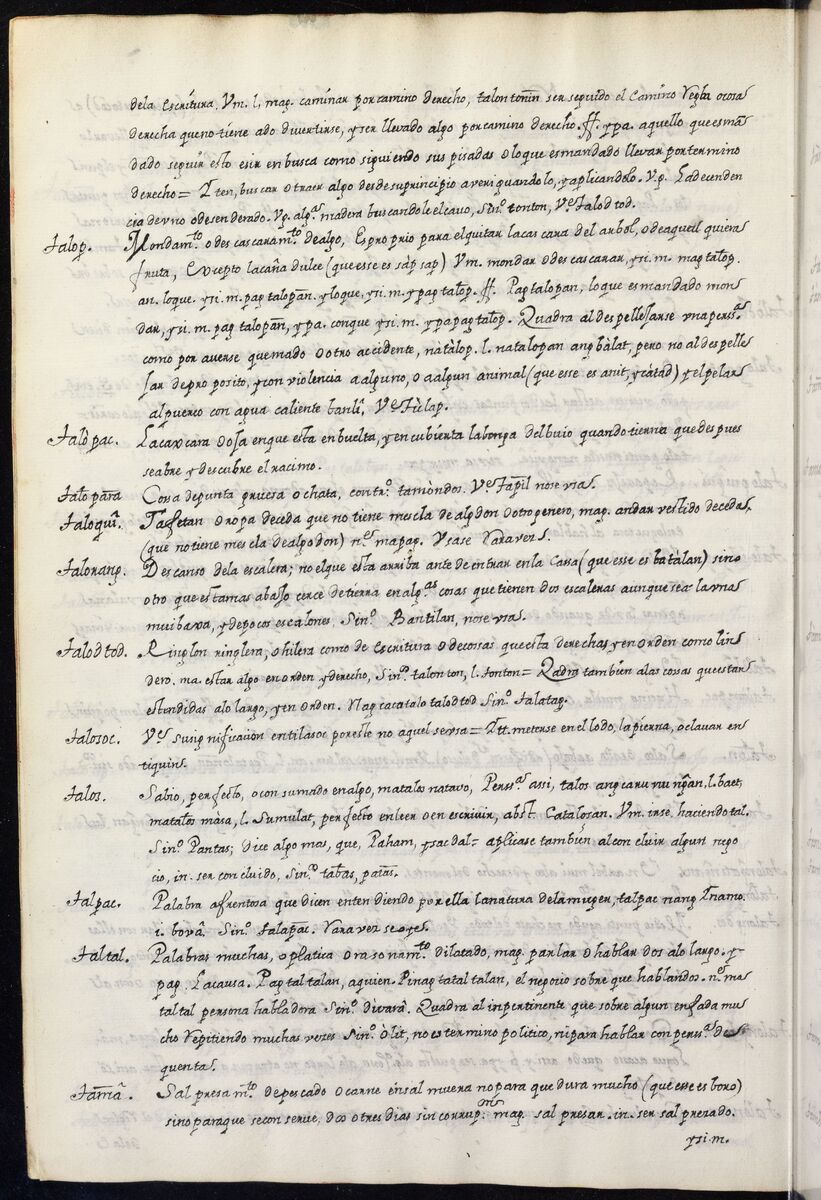 dela escritura, Vm. l, mag. caminar por camino derecho, talontonin ser seguido el camino Regla o cosa
derecha que no tiene ado divertirse, y ser llevado algo por camino derecho. H. ypa. aquello que esman
dado seguir esto es ir en busca como siguiendo sus pisadas o loque es mandado llevar por termino
derecho = Itten, buscar o traer algo desde su principio averiguandolo, y aplicandolo. V.g. La decenden
cia de vno o desenderado. Vg. algª madera buscandole el cavo, Sinº. tonton, Ve. talodtod.
talop. Mondamto. o des cascaramto. de algo, Es proprio para el quitar la cascara del arbol, o de aquell quiera
fruta, Excepto la caña dulce (que esse es sàp sap) Vm. mondar o des cascarar, ysi. m. mag talop.
an. loque. ysi. m. pag talopan. yloque, ysi. m. ypag talop. H. Pag talopan, loque es mandado mon
dar, ysi. m. pag talopan, ypa. conque ysi. m. ypapag talop. Quadra al des pellejarse vna perssª.
como por averse quemado o otro accidente, nàtàlop. l. natalopan ang bàlat, pero no al des pelle
jar de pro posito, y con violencia a alguno, o a algun animal (que esse es anit, ycatad) y el pelar
al puerco con agua caliente banli, Ve. Tùlap.
talo pac. La caxcara o oja en que esta en buelta, y en cubierta la bonga del buio quando tierna que des pues
se abre y descubre el racimo.
talo para Cosa de punta gruesa o chata, contrº. tamòndos. Ve. Tapil nose vsa.
taloqui. Taffetan o ropa de ceda que no tiene mescla de algodon o otro genero, mag. andar vestido de ceda.
(que no tiene mes cla de algodon) nº. mapag. Vsase Rara vez.
talorang. Descanso dela escalera; no el que esta arriba ante de entrar en la cassa (que esse es batàlan) sino
otro que esta mas abajo cerce de tierra en algªs cosas que tienen dos escaleras aunque sea la vna
mui bava, y de pocos escalones. Sinº. Bantilan, nose vsa.
talodtod. Ringlon ringlera, o hilera como de escritura o de cossas que esta derecha, y en orden como lin
dero. ma. estar algo en orden y derecho, Sinº. talon ton, l. tonton = Qadra tambien a las cossas que estan
estendidas a lo largo, y en orden. Nag cacatalo talodtod Sinº. talatag.
talosoc. Ve. su significacion en tilàsoc por este no aquel se vsa = Itt. meterse en el lodo, la pierna, o clavar en
tiquin.
talos. Sabio, perfecto, o consumado en algo, matalos natavo, Perssª assi, talos ang caru nu ngan, l. baet,
matalos màsa, l. Sumulat, perfecto en leer o en escrivir, abst. Catalosan. Vm. irse, haciendo tal.
Sinº. Pantas; Dice algo mas, que, Paham, ysac dal = aplicase tambien al con cluir algun nego
cio, in. ser con cluido, Sinº. tabas, patas.
talpac. Palabra afrentosa que dicen enten diendo por ella la natura dela muger, talpac nang Inamo.
i. bova. Sinº. talapac. Rara vez se oye.
taltal. Palabras muchas, o platica o raso namto. dilatado, mag. parlar o hablar dos alo largo. y
pag. La causa. Pag tal talan, a quien. Pinag tatal talan, el negocio sobre que hablando. nº. ma
tal tal persona habladora Sinº. diwara. Quadra al inpertinente que sobre algun enfada mu
cho Repitiendo muchas vezes Sinº. òlit, no es termino politico, ni para hablar con perssª. de
quenta.
tama. Sal presa mto. de pescado o carne en sal muera no para que dura mucho (que esse es boro)
sino paraque se con serve, dos o tres dias sin corrup. mag. sal presar. in. ser sal prezado.
ysi. m.